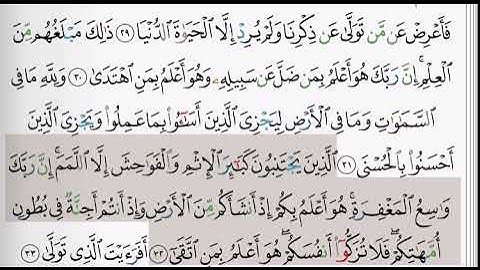 فَأَعْرِضْ عَن مَّن تَوَلَّىٰ عَن ذِكْرِنَا وَلَمْ يُرِدْ إِلَّا ٱلْحَيَوٰةَ ٱلدُّنْيَا ٢٩ ذَٰلِكَ مَبْلَغُهُم مِّنَ
ٱلْعِلْمِ ۚ إِنَّ رَبَّكَ هُوَ أَعْلَمُ بِمَن ضَلَّ عَن سَبِيلِهِۦ وَهُوَ أَعْلَمُ بِمَنِ ٱهْتَدَىٰ ٣٠ وَلِلَّهِ مَا فِى
ٱلسَّمَٰوَٰتِ وَمَا فِى ٱلْأَرْضِ لِيَجْزِىَ ٱلَّذِينَ أَسَٰٓـُٔوا۟ بِمَا عَمِلُوا۟ وَيَجْزِىَ ٱلَّذِينَ
أَحْسَنُوا۟ بِٱلْحُسْنَى ٣١ ٱلَّذِينَ يَجْتَنِبُونَ كَبَٰٓئِرَ ٱلْإِثْمِ وَٱلْفَوَٰحِشَ إِلَّا ٱللَّمَمَ ۚ إِنَّ رَبَّكَ
وَٰسِعُ ٱلْمَغْفِرَةِ ۚ هُوَ أَعْلَمُ بِكُمْ إِذْ أَنشَأَكُم مِّنَ ٱلْأَرْضِ وَإِذْ أَنتُمْ أَجِنَّةٌ فِى بُطُونِ
أُمَّهَٰتِكُمْ ۖ فَلَا تُزَكُّوٓا۟ أَنفُسَكُمْ ۖ هُوَ أَعْلَمُ بِمَنِ ٱتَّقَىٰٓ ٣٢ أَفَرَءَيْتَ ٱلَّذِى تَوَلَّىٰ ٣٣